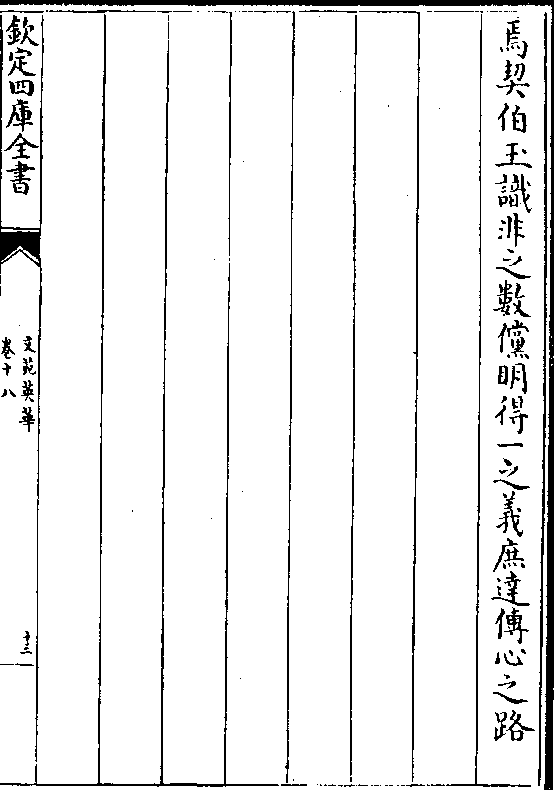 焉契伯玉識非之數儻明得一之義庶達傳心之路
欽定四庫全書
文苑英華
卷十八
十三